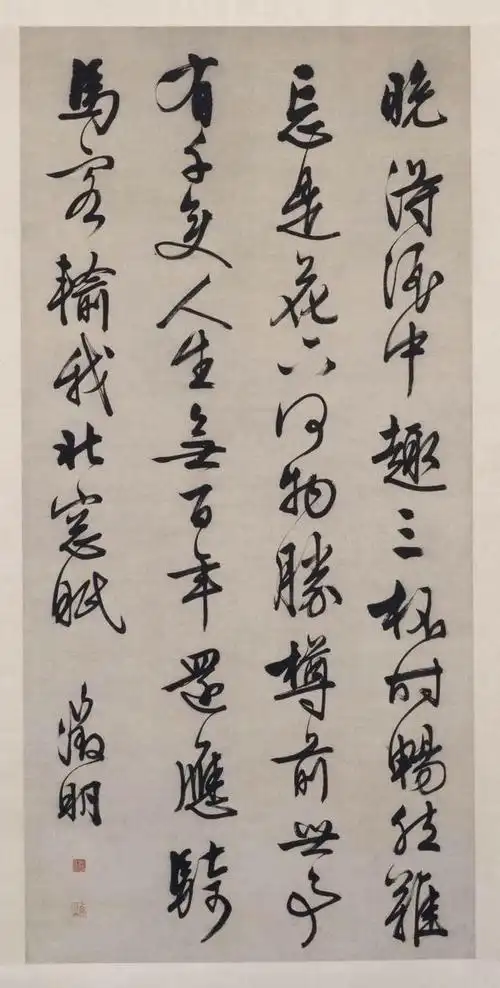 晚得酒中趣三杯時暢然難
忘是花下何物勝樽前世事
有千變人生無百年還應騎
馬客輸我北窗眠
徵明